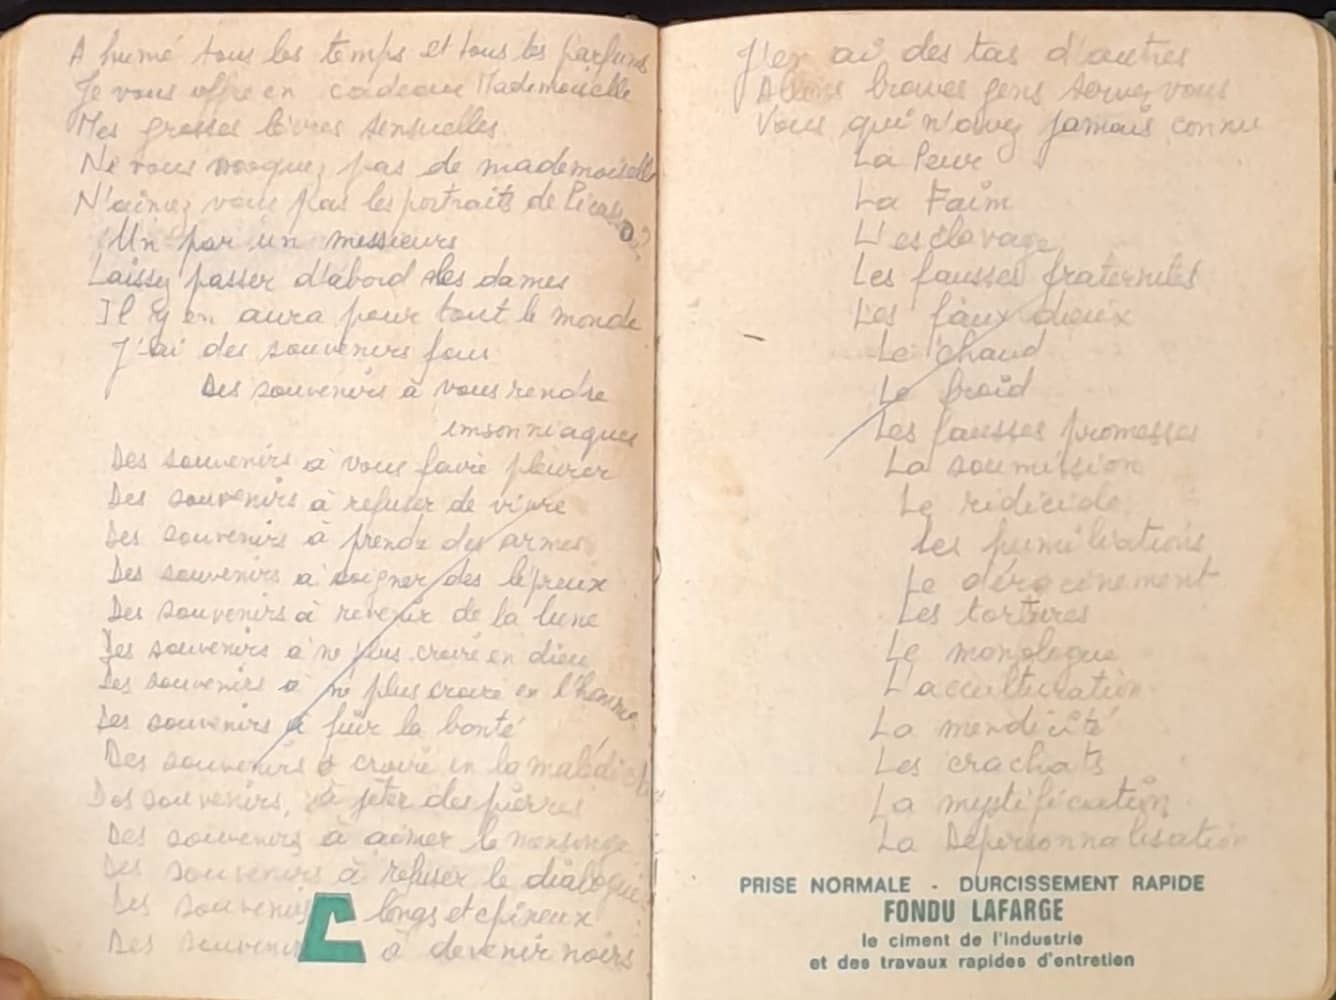 A humé tous les temps et tous les parfums
Je vous offre en cadeau Mademoiselle
Mes grosses lèvres sensuelles
Ne vous moquez pas de mademoiselle
N'aimez vous pas les portraits de Picasso?
Un par un messieurs
Laissez passer d'abord les dames
Il y en aura pour tout le monde
J'ai des souvenirs fous
Des souvenirs à vous rendre
imsonniaques
Des souvenirs à vous faire pleurer
Des souvenirs à refuser de vivre
Des souvenirs à prendre des armes
Des souvenirs à soigner des lépreux
Des souvenirs à revenir de la lune
Des souvenirs à ne plus croire en dieu
Des souvenirs à ne plus croire en l'homme
Des souvenirs à fuir la bonté
Des souvenirs à croire en la
Des souvenirs, à jeter des pierres
Des souvenirs à aimer le mensonge
Des souvenirs à refuser le dialogue
Des souvenirs longs et épineux
Des souvenirs à devenir noirs
J'en ai des tas d'autres
Allons braves gens servez vous
Vous qui n'avez jamais connu
La Peur
La Faim
L'esclavage
Les fausses fraternités
Les faux dieux
Le chaud
Le froid
Les fausses promesses
La soumission
Le ridicule
Les humiliations
Le déracinement
Les tortures
Le monologue
L'acculturation
La mendicité
Les crachats
La mystification
La Dépersonnalisation
PRISE NORMALE - DURCISSEMENT RAPIDE
FONDU LAFARGE
le ciment de l'industrie
et des travaux rapides d'entretien